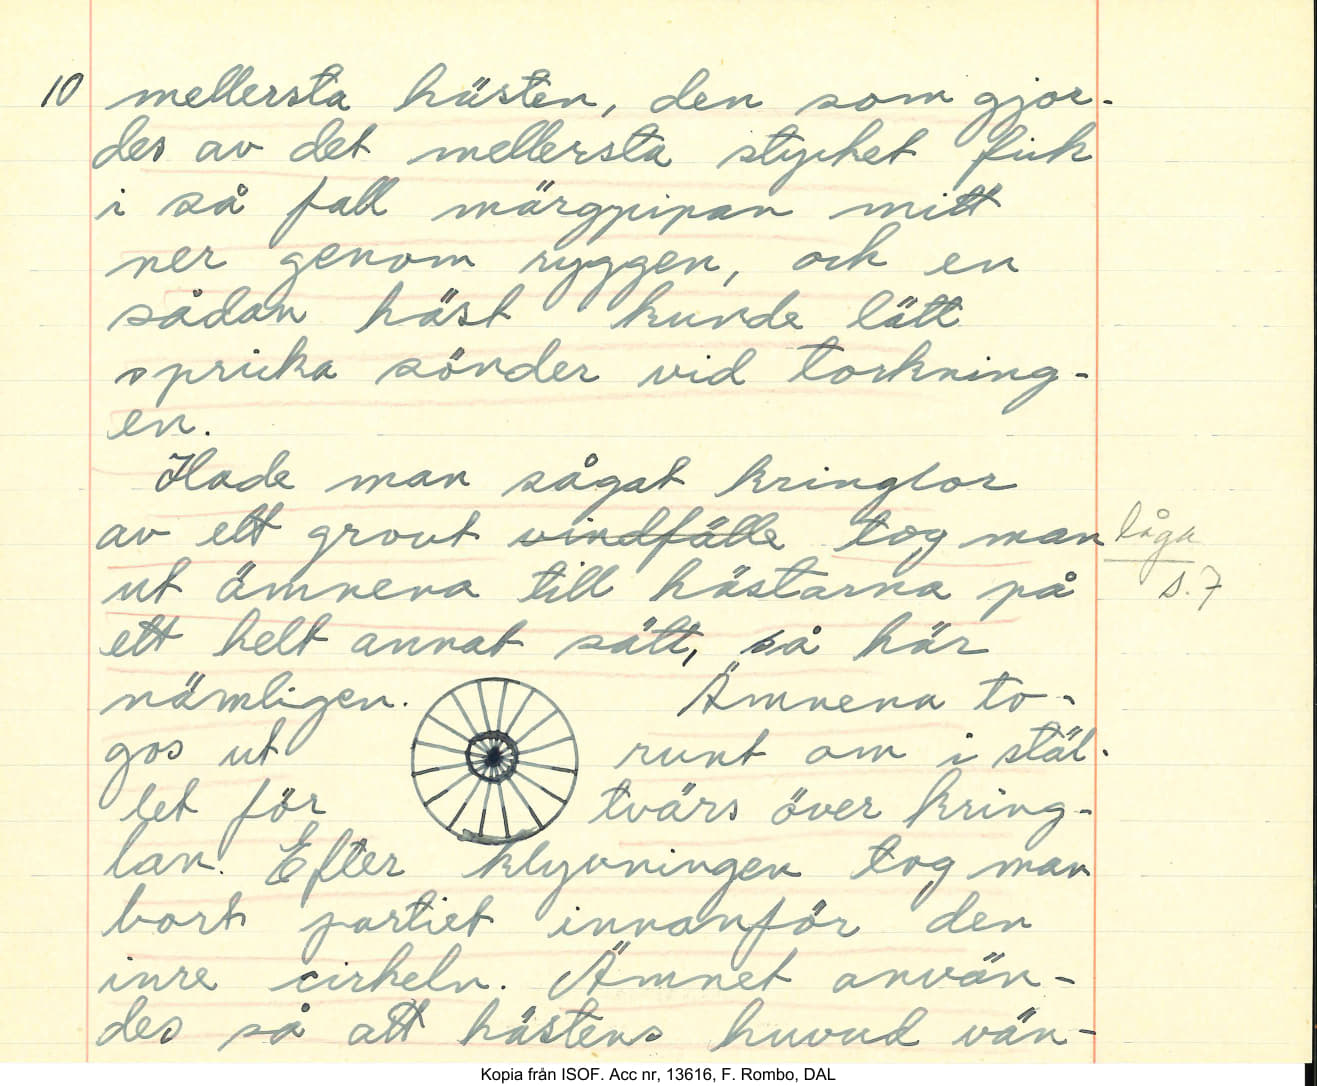 10 mellersta hästen, den som gjor-
des av det mellersta stycket fick
i så fall märgpipan mitt
ner genom ryggen, och en
sådan häst kunde lätt
spricka sönder vid torkning-
en.
Hade man sågat kringlor
av ett grovt vindfälle tog man låga
ut ämnena till hästarna på s. 7
ett helt annat sätt, så här
nämligen. Ämnena to-
gos ut runt om i stäl-
let för tvärs över kring-
lan. Efter klyvningen tog man
bort partiet innanför den
inre cirkeln. Ämnet använ-
des så att hästens huvud vän-
Kopia från ISOF. Acc nr, 13616, F. Rombo, DAL